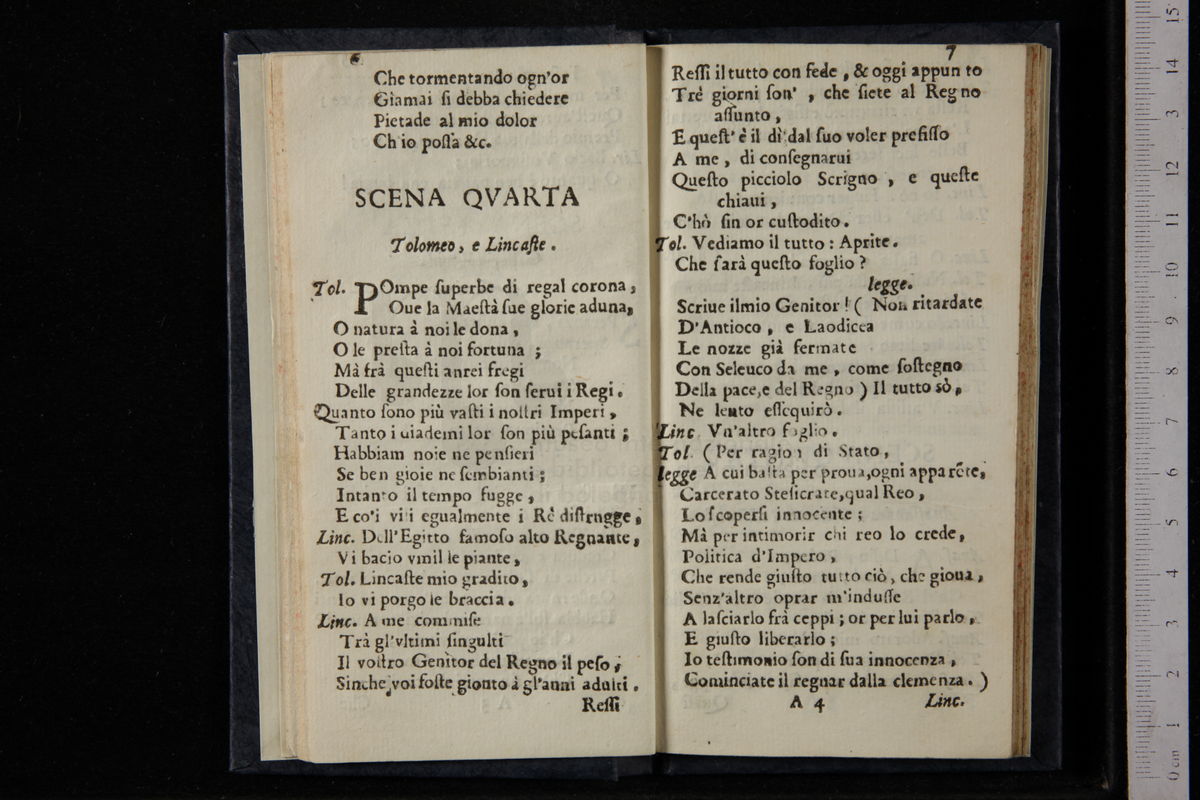 6
Che tormentando ogn'or
Giamai si debba chiedere
Pietade al mio dolor
Ch io possa &c.
SCENA QVARTA
Tolomeo, e Lincaste.
Tol. POmpe superbe di regal corona,
Oue la Maestà sue glorie aduna,
O natura à noi le dona,
O le presta à noi fortuna ;
Mà frà questi anrei fregi
Delle grandezze lor son serui i Regi.
Quanto sono più vasti i nostri Imperi,
Tanto i diademi lor son più pesanti ;
Habbiam noie ne pensieri
Se ben gioie ne sembianti ;
Intanto il tempo fugge,
E co'i vili egualmente i Rè distrugge,
Linc. Dell'Egitto famoso alto Regnante,
Vi bacio vmil le piante,
Tol. Lincaste mio gradito,
Io vi porgo le braccia.
Linc. A me commise
Trà gl'vltimi singulti
Il vostro Genitor del Regno il peso ;
Sinche voi foste gionto à gl'anni adulti.
Ressi
7
Ressi il tutto con fede, & oggi appun to
Trè giorni son', che siete al Regno
assunto,
E quest' è il dì dal suo voler prefisso
A me, di consegnarui
Questo picciolo Scrigno, e queste
chiaui,
C'hò sin or custodito.
Tol. Vediamo il tutto : Aprite.
Che sarà questo foglio ?
legge.
Scriue ilmio Genitor ! ( Non ritardate
D'Antioco, e Laodicea
Le nozze già fermate
Con Seleuco da me, come sostegno
Della pace,e del Regno ) Il tutto sò,
Ne lento essequirò.
Linc Vn'altro foglio.
Tol. ( Per ragion di Stato,
legge A cui basta per proua,ogni apparēte,
Carcerato Stesicrate,qual Reo,
Lo scopersi innocente ;
Mà per intimorir chi reo lo crede,
Politica d'Impero,
Che rende giusto tutto ciò, che gioua,
Senz'altro oprar m'indusse
A lasciarlo frà ceppi ; or per lui parlo,
E giusto liberarlo ;
Io testimonio son di sua innocenza,
Cominciate il regnar dalla clemenza. )
A 4
Linc.
0 cm 1 2 3 4 5 6 7 8 9 10 11 12 13 14 15